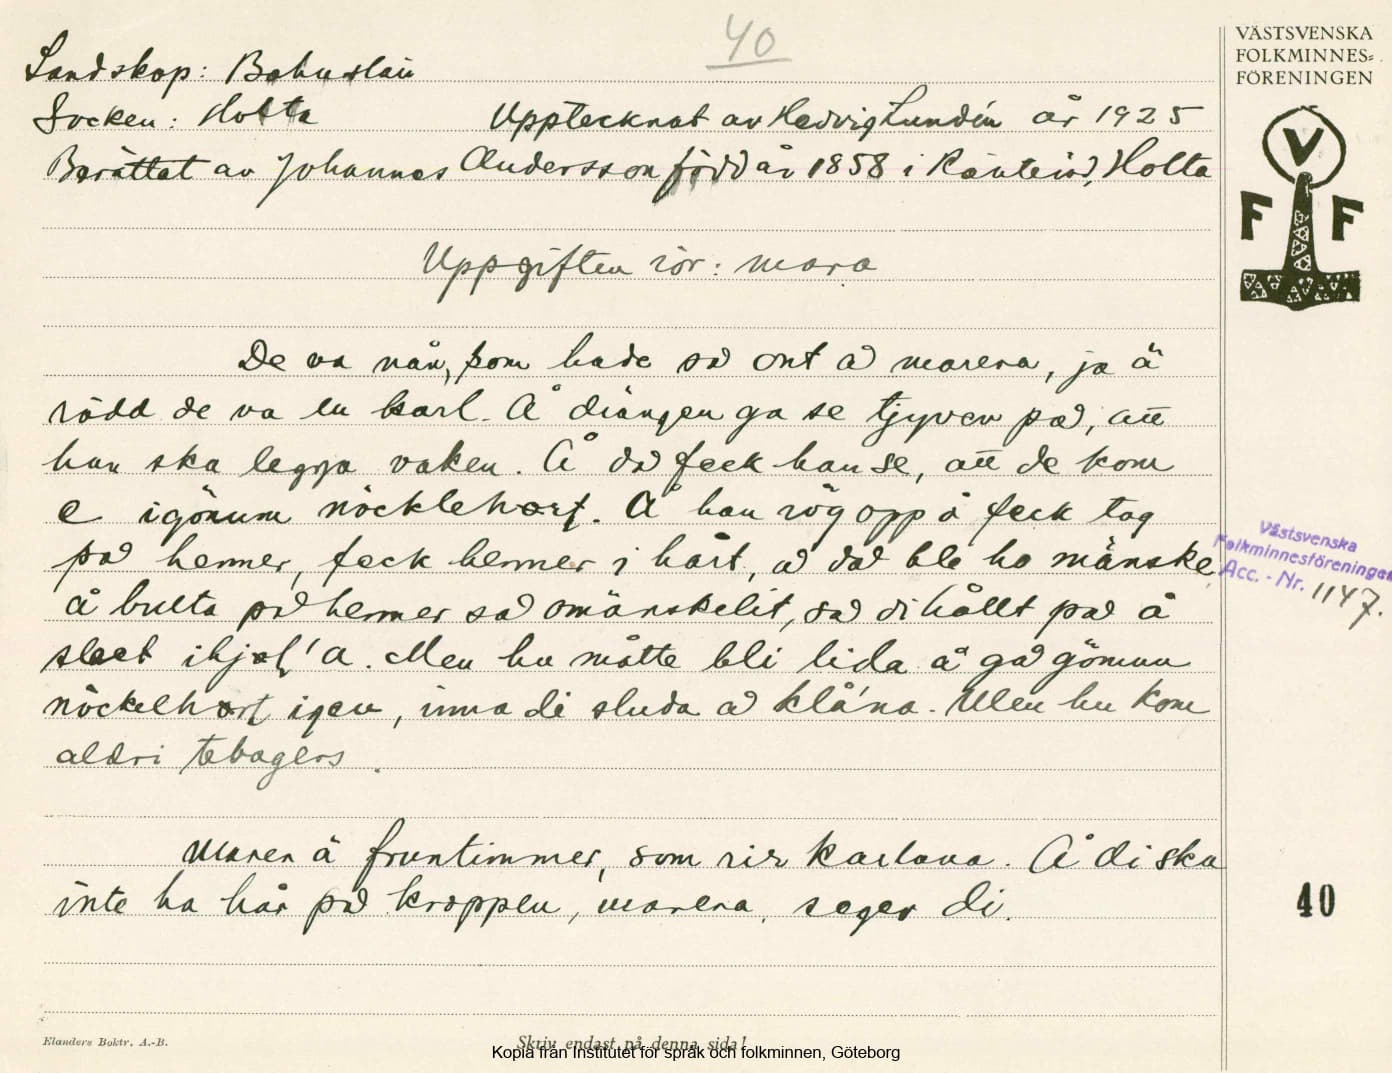 40
VÄSTSVENSKA
FOLKMINNES=
FÖRENINGEN
V
F F
Landskap: Bohuslän
Socken: Holta Upptecknat av Hedvig Lundin år 1925
Berättat av Johannes Andersson född år 1858 i Ränteröd, Holta
Uppgiften rör: mara
De va nån, som hade så ont å marera, ja ä
rädd de va en karl. Å drängen ga se tjyven på, att
han ska leggja vaken. Å då feck han se, att de kom
e igönum nöcklehort. Å han rög opp å feck tag
på henner, feck henner i hårt, å då ble ho mänske
å bulta på henner så omänskelit, så di hållt på å
slaet ihjel'a. Men hu måtte bli lida å gå gömun
nöckelhort igen, inna di sluda å klå'na. Men hu kom
aldri tebagers.
Marer ä fruntimmer, som rir karlana. Å di ska
inte ha hår på kroppen, marera, seger di.
Västsvenska
Folkminnesföreningen
Acc. - Nr. 1147.
40
Elanders Boktr. A.-B.
Skriv endast på denna sida!
Kopia från Institutet för språk och folkminnen, Göteborg